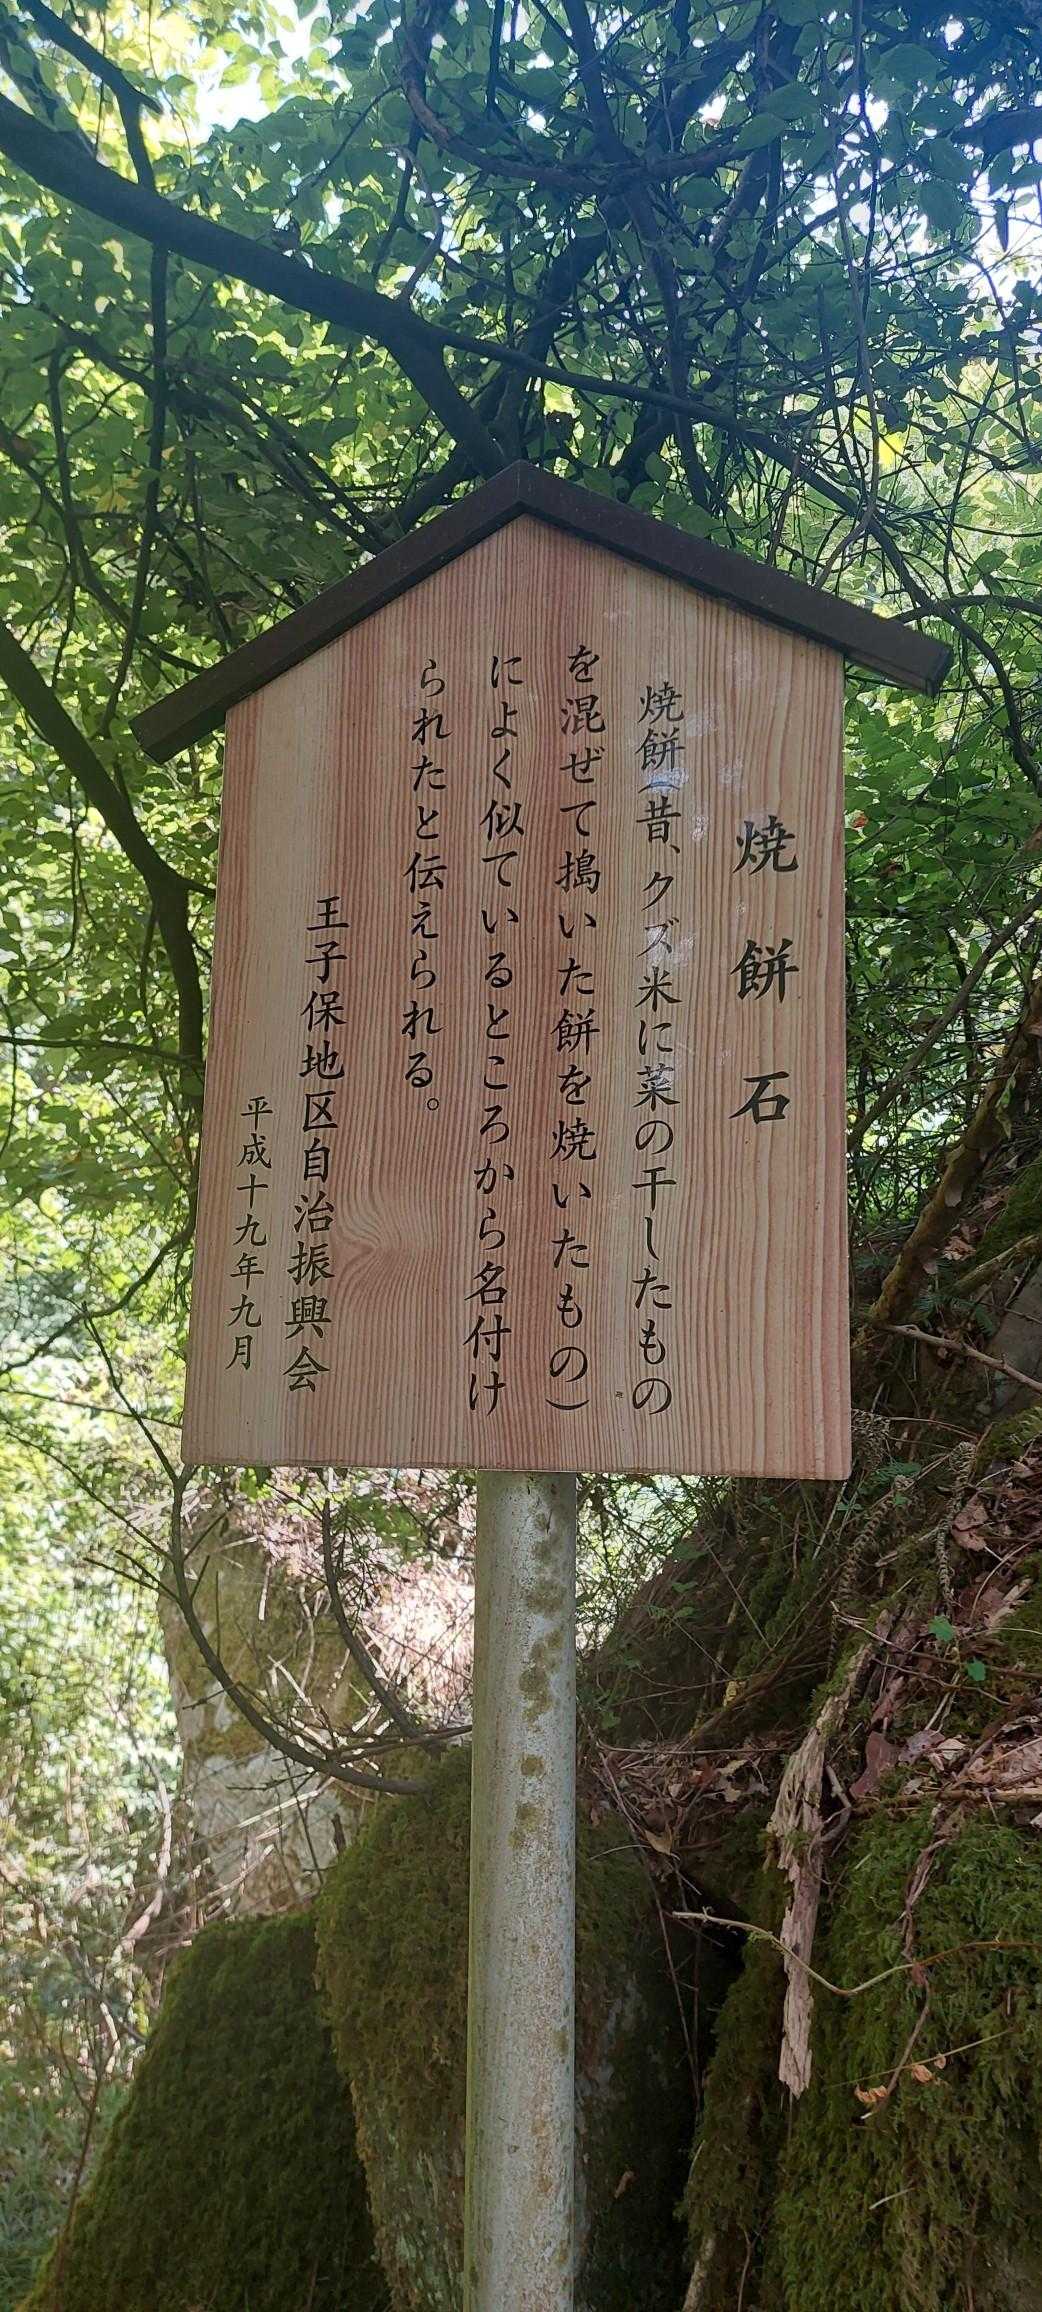 焼餅石
焼餅（昔、クズ米に菜の干したもの
を混ぜて搗いた餅を焼いたもの）
によく似ているところから名付け
られたと伝えられる。
王子保地区自治振興会
平成十九年九月